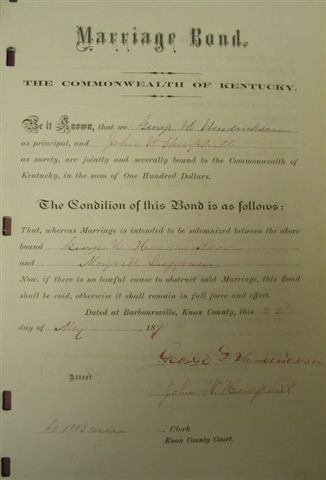 Marriage Bond.
THE COMMONWEALTH OF KENTUCKY.
Be it Known, that we George W Hendrickson
as principal, and John W Hemphill
as surety, are jointly and severally bound to the Commonwealth of
Kentucky, in the sum of One Hundred Dollars.
The Condition of this Bond is as follows:
That, whereas Marriage is intended to be solemnized between the above
bound George W Hendrickson
and
Now, if there is no lawful cause to obstruct said Marriage, this Bond
shall be void, otherwise it shall remain in full force and effect.
Dated at Barboursville, Knox County, this
day of May 187
George G Hendrickson
Attest: John W. Hemphill
, Clerk
Knox County Court.